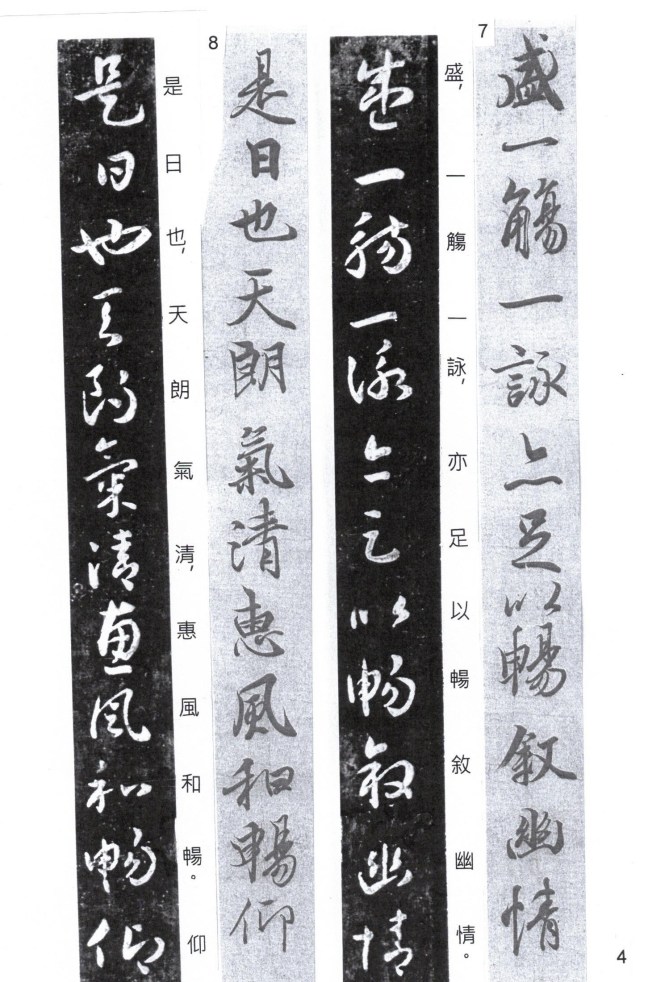 7
盛一觴一詠亦足以暢敘幽情
盛,一觴一詠,亦足以暢敘幽情。
盛一觴一詠亦足以暢敘幽情
8
是日也天朗氣清惠風和暢仰
是日也,天朗氣清,惠風和暢。仰
是日也天朗氣清惠風和暢仰
4